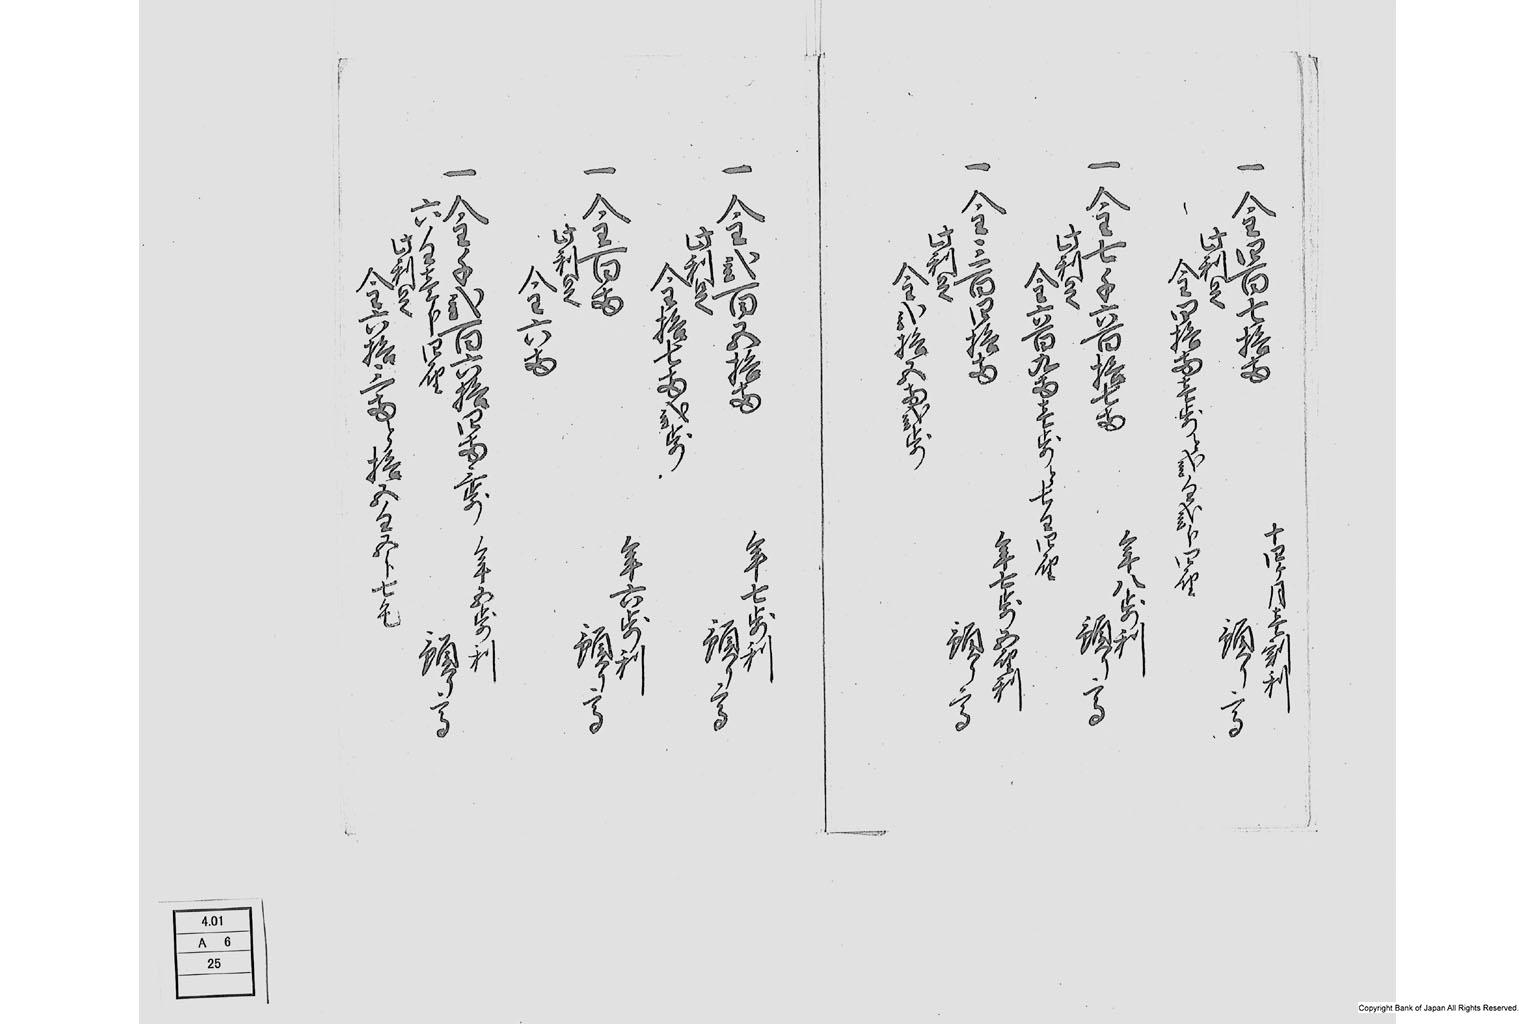 十四ヶ月壱割利
一金四百七拾両
預り高
此利足
金四拾両壱歩ト弐匁弐分四厘
年八歩利
一金七千六百拾七両
預り高
此利足
金六百九両壱歩ト七匁四厘
年七歩五厘利
一金三百四拾両
預り高
此利足
金弐拾五両弐歩
年七歩利
一金弐百五拾両
預り高
此利足
金拾七両弐歩
年六歩利
一金百両
預り高
此利足
金六両
年五歩利
一金千弐百六拾四両三歩
六匁壱分四厘
預り高
此利足
金六拾三両ト拾五匁五分七毛
4.01
A 6
25
Copyright Bank of Japan All Rights Reserved.